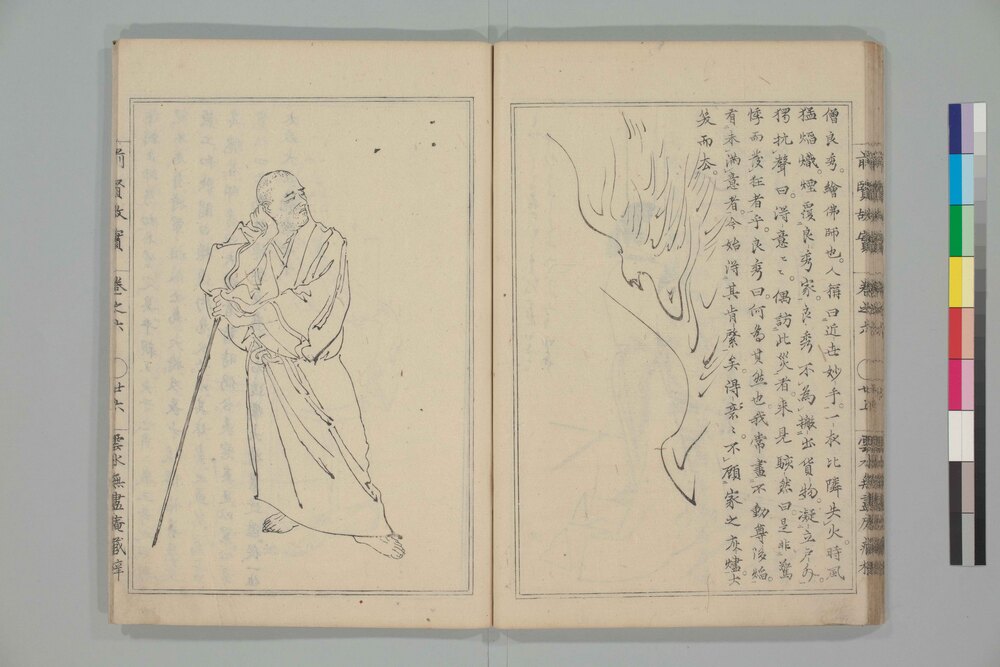 僧良秀。繪佛師也。人稱曰近世妙手。一夜比隣失火。時風
猛焰熾。煙覆良秀家。良秀不為搬出貨物。凝立戸外。
獨抗聲曰。得意々々。偶訪此災者。來見駭然曰。是非驚
悸而發狂者乎。良秀曰。何為其然也。我常畫不動尊後焰。
有未滿意者。今始得其肯綮矣。得意々々。不顧家之灰燼。大
笑而去。
前賢故實 卷之六 廿五
前賢故實 卷之六 廿六 雲水無盡庵藏梓